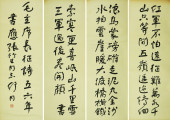 紅軍不怕遠征難萬水千
山只等閒五嶺逶迤騰細
浪烏蒙磅礴走泥丸金沙
水拍雲崖暖大渡橋橫鐵
索寒更喜岷山千里雪
三軍過後盡開顏
毛主席長征詩
舒同